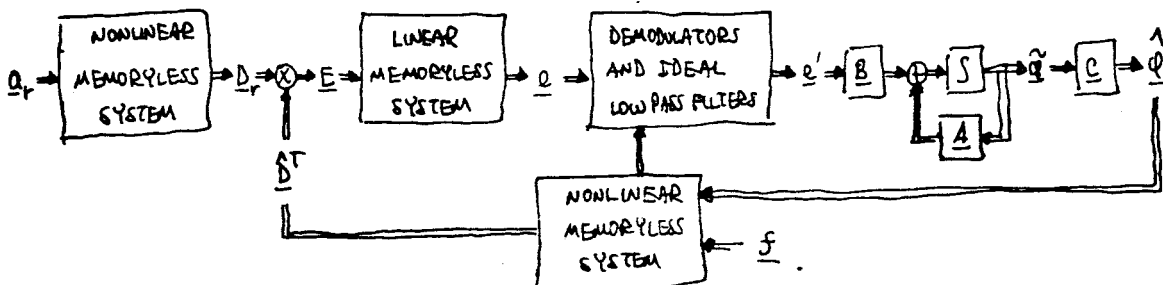 NONLINEAR
MEMORYLESS
SYSTEM
LINEAR
MEMORYLESS
SYSTEM
DEMODULATORS
AND IDEAL
LOWPASS FILTERS
a_r D_r × E e e' B + S φ̃ C φ̂
A
D̂^T
NONLINEAR
MEMORYLESS
SYSTEM
f .